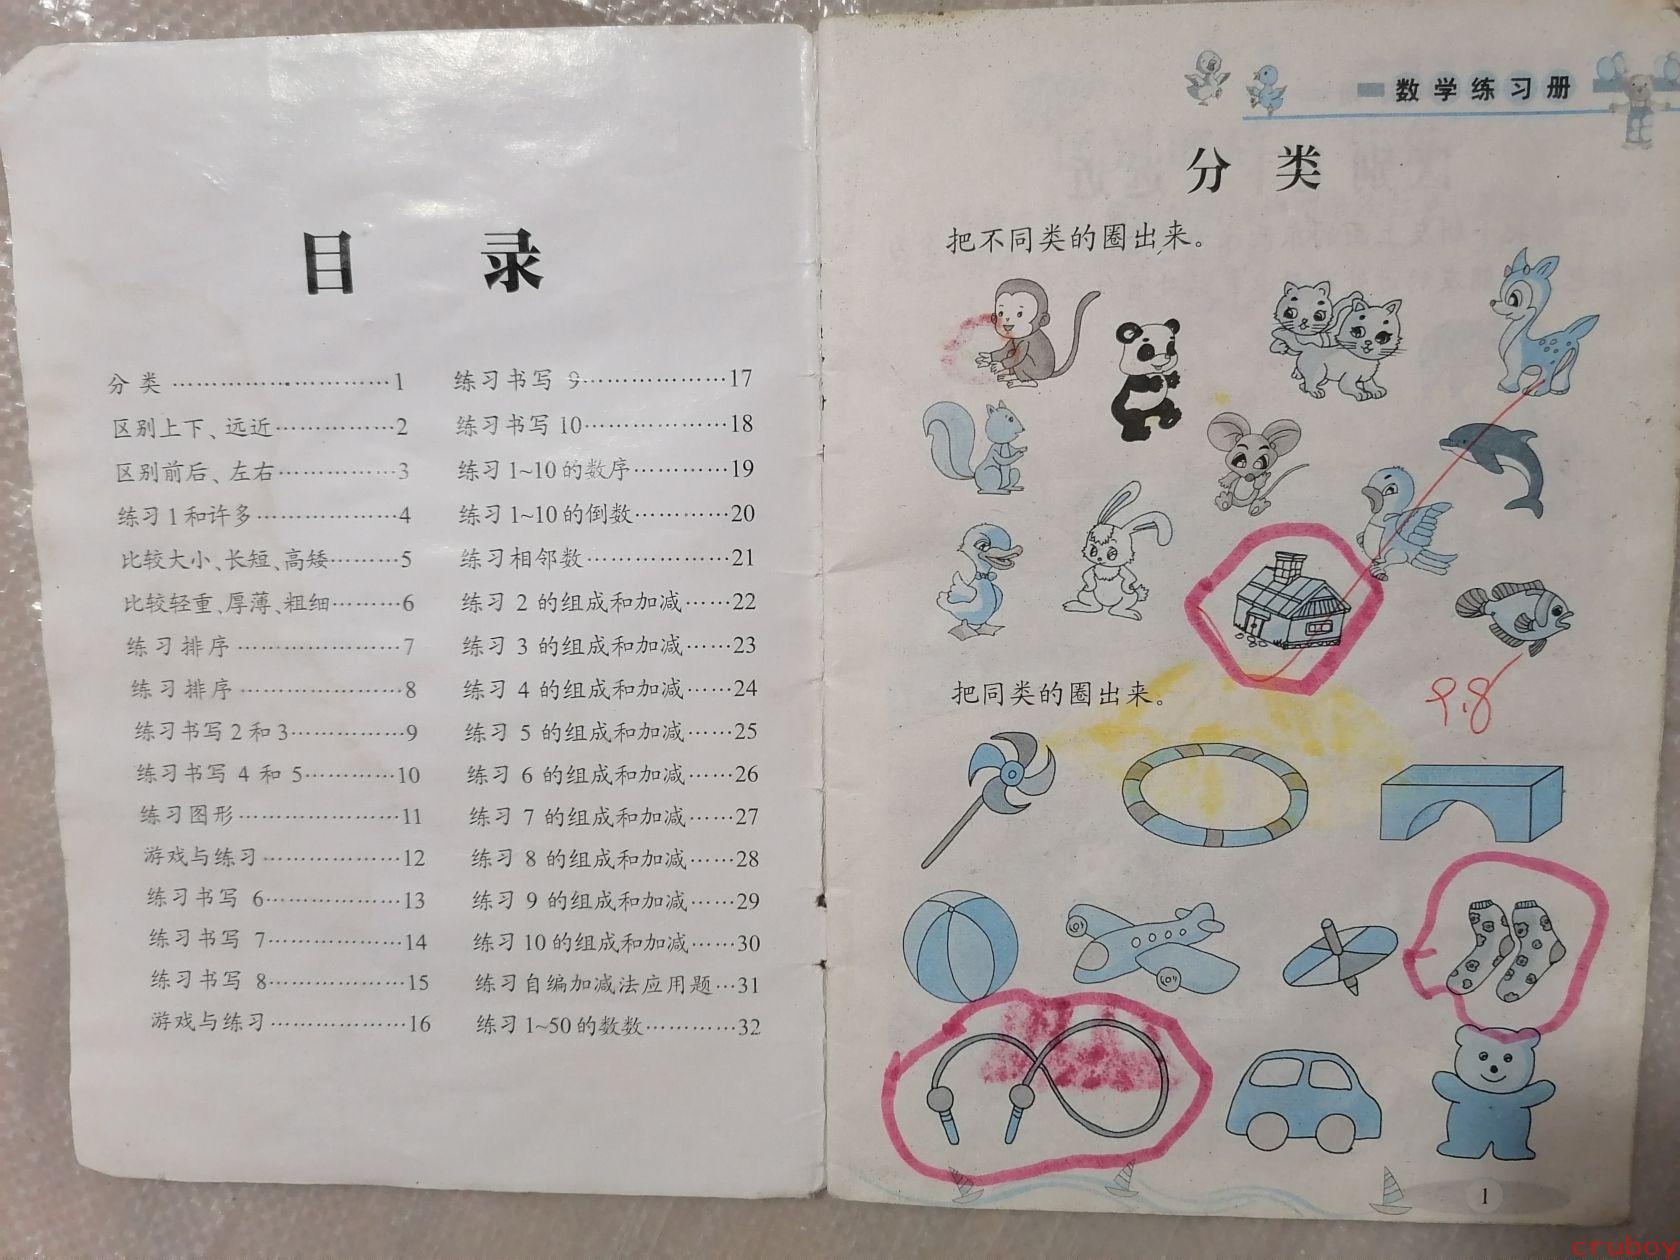 目 录
分类…………………………1
区别上下、远近……………2
区别前后、左右……………3
练习1和许多………………4
比较大小、长短、高矮………5
比较轻重、厚薄、粗细………6
练习排序…………………7
练习排序…………………8
练习书写2和3……………9
练习书写4和5…………10
练习图形…………………11
游戏与练习………………12
练习书写 6………………13
练习书写 7………………14
练习书写 8………………15
游戏与练习………………16
练习书写 9………………17
练习书写10………………18
练习1~10的数序…………19
练习1~10的倒数…………20
练习相邻数………………21
练习 2 的组成和加减……22
练习 3 的组成和加减……23
练习 4 的组成和加减……24
练习 5 的组成和加减……25
练习 6 的组成和加减……26
练习 7 的组成和加减……27
练习 8 的组成和加减……28
练习 9 的组成和加减……29
练习10的组成和加减……30
练习自编加减法应用题…31
练习1~50的数数…………32
数学练习册
分 类
把不同类的圈出来。
9.8
把同类的圈出来。
1
cruboy